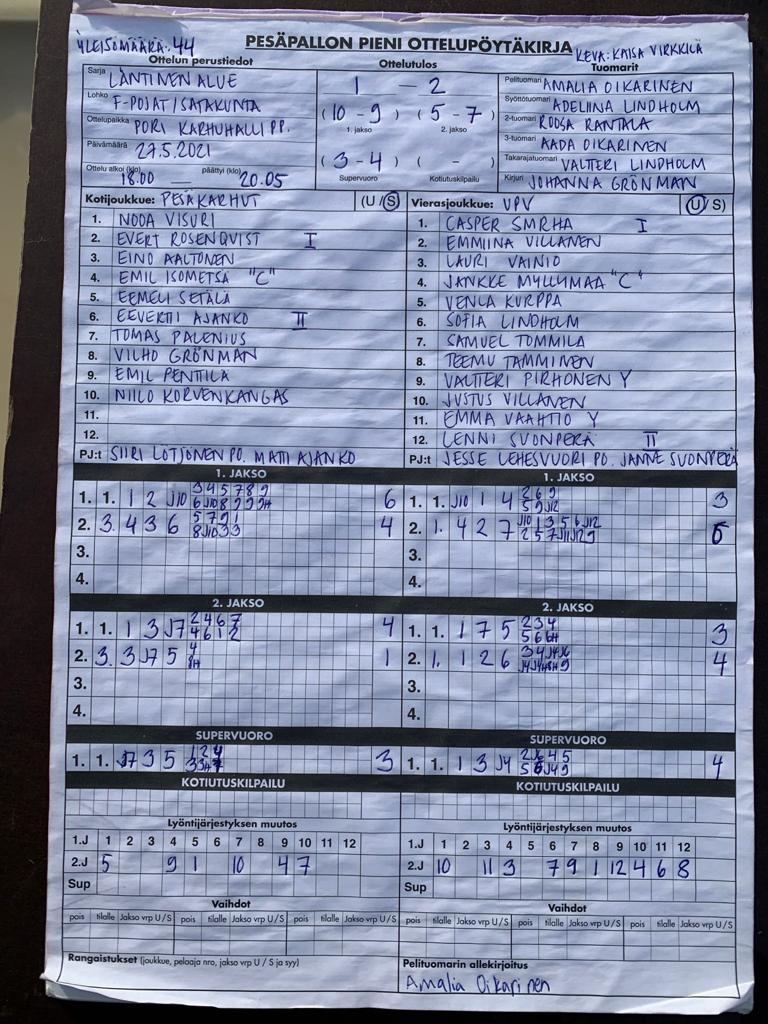 YLEISÖMÄÄRÄ: 44
PESÄPALLON PIENI OTTELUPÖYTÄKIRJA
KEVA: KAISA VIRKKILÄ
Ottelun perustiedot
Sarja LÄNTINEN ALUE
Lohko F-POJAT/SATAKUNTA
Ottelupaikka PORI KARHUHALLI PP.
Päivämäärä 27.5.2021
Ottelu alkoi (klo) 18.00 päättyi (klo) 20.05
Ottelutulos
1 - 2
(10 - 9) (5 - 7)
1. jakso 2. jakso
(3 - 4) ( - )
Supervuoro Kotiutuskilpailu
Tuomarit
Pelituomari AMALIA OIKARINEN
Syöttötuomari ADELIINA LINDHOLM
2-tuomari ROOSA RANTALA
3-tuomari AADA OIKARINEN
Takarajatuomari VALTTERI LINDHOLM
Kirjuri JOHANNA GRÖNMAN
Kotijoukkue: PESÄKARHUT (U / S)
1. NOOA VISURI
2. EVERT ROSENQVIST I
3. EINO AALTONEN
4. EMIL ISOMETSÄ "C"
5. EEMELI SETÄLÄ
6. EEVERTTI AJANKO II
7. TOMAS PALENIUS
8. VILHO GRÖNMAN
9. EMIL PENTTILÄ
10. NIILO KORVENKANGAS
11.
12.
PJ:t SIIRI LÖTJÖNEN PO. MATTI AJANKO
Vierasjoukkue: VPV (U / S)
1. CASPER SMRHA I
2. EMMIINA VILLANEN
3. LAURI VAINIO
4. JANKKE MYLLYMAA "C"
5. VENLA KURPPA
6. SOFIA LINDHOLM
7. SAMUEL TOMMILA
8. TEEMU TAMMINEN
9. VALTTERI PIRHONEN Y
10. JUSTUS VILLANEN
11. EMMA VAAHTIO Y
12. LENNI SUONPERÄ II
PJ:t JESSE LEHESVUORI PO. JANNE SUONPERÄ
1. JAKSO
1. 1. 1 2 J10 345789 6
2. 3. 4 3 6 5791 4
3.
4.
1. JAKSO
1. 1. J10 1 4 269 3
2. 1. 4 2 7 J10 1 3 5 6 J12 6
3.
4.
2. JAKSO
1. 1. 1 3 J7 2467 4612 4
2. 3. 3 J7 5 4 8H 1
3.
4.
2. JAKSO
1. 1. 1 7 5 234 566H 3
2. 1. 1 2 6 4
3.
4.
SUPERVUORO
1. 1. J7 3 5 124 3
SUPERVUORO
1. 1. 1 3 J4 4
KOTIUTUSKILPAILU
KOTIUTUSKILPAILU
Lyöntijärjestyksen muutos
1.J 1 2 3 4 5 6 7 8 9 10 11 12
2.J 5 9 1 10 4 7
Sup
Lyöntijärjestyksen muutos
1.J 1 2 3 4 5 6 7 8 9 10 11 12
2.J 10 11 3 7 9 1 12 4 6 8
Sup
Vaihdot
pois tilalle Jakso vrp U/S pois tilalle Jakso vrp U/S pois tilalle Jakso vrp U/S
Vaihdot
pois tilalle Jakso vrp U/S pois tilalle Jakso vrp U/S pois tilalle Jakso vrp U/S
Rangaistukset (joukkue, pelaaja nro, jakso vrp U / S ja syy)
Pelituomarin allekirjoitus
Amalia Oikarinen